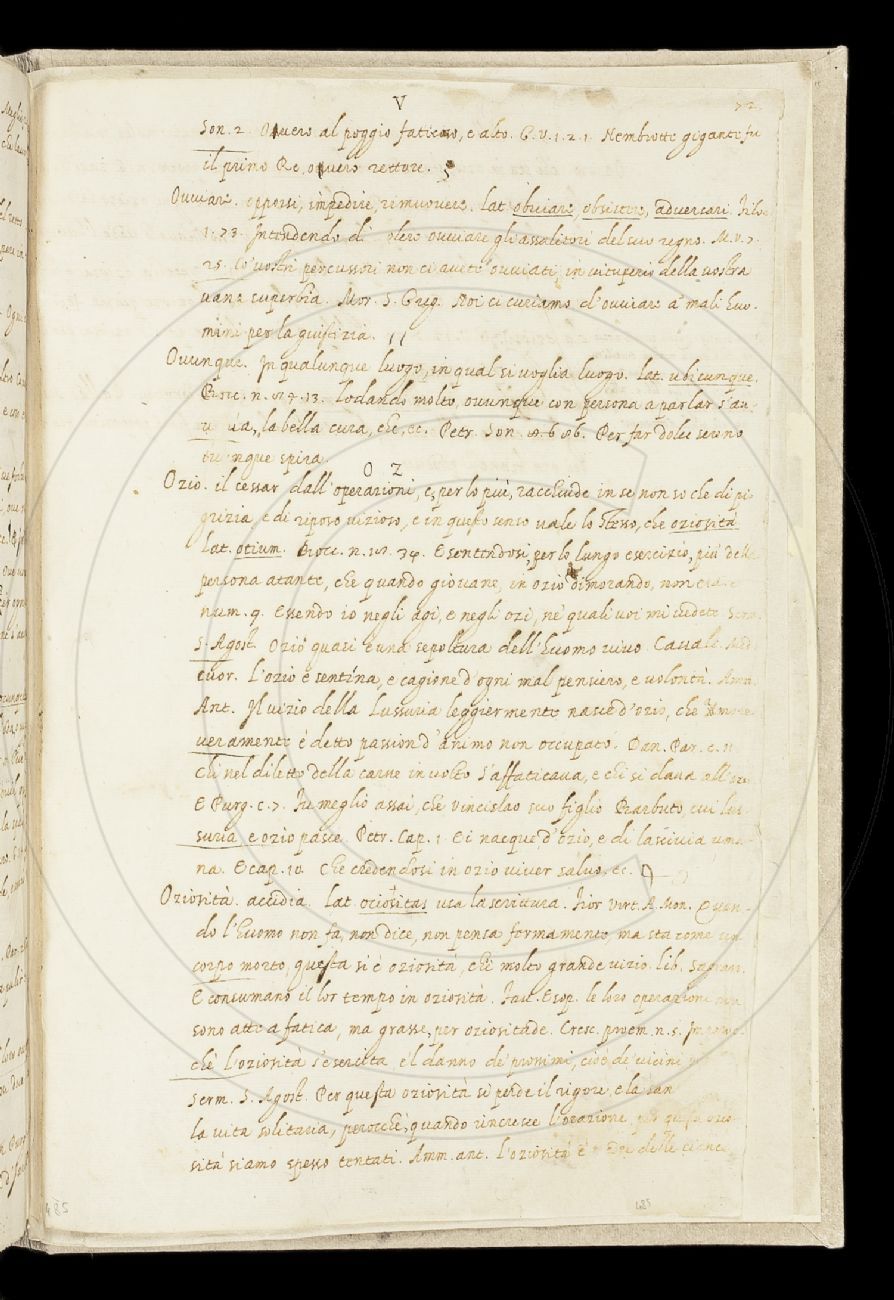 V
72.
Son. 2. Ovvero al poggio faticoso, e alto. G. V. 1. 2. 1. Nembrotte gigante fu
il primo Re, ovvero rettore.
Ovviare. opporsi, impedire, rimuovere. Lat. obviare, obsistere, adversari. Filoc.
1. 73. Intendendo di volere ovviare gli assalitori del suo regno. M. V. 7.
25. Co' vostri percussori non ci avete ovviati, in vituperio della vostra
vana superbia. Mor. S. Greg. Noi ci curiamo d'ovviare a' mali huo-
mini per la giustizia.
Ovunque. In qualunque luogo, in qual si voglia luogo. Lat. ubicunque.
Bocc. n. 13. Lodando molto, ovunque con persona a parlar s'av-
veniva, la bella cura, che, ec. Petr. Son. Per far dolce sereno
ovunque spira.
O Z
Ozio. il cessar dall'operazioni, e, per lo più, racchiude in se non so che di pi-
grizia, e di riposo vizioso, e in questo senso vale lo stesso, che oziosità.
Lat. otium. Bocc. n. E sentendosi, per lo lungo esercizio, più della
persona atante, che quando giovane, in ozio dimorando, non era. e
num. 9. Essendo io negli agi, e negli ozi, ne' quali voi mi vedete. Serm.
S. Agost. Ozio quasi è una sepoltura dell'huomo vivo. Cavalc. Med.
cuor. L'ozio è sentina, e cagione d'ogni mal pensiero, e volontà. Amm.
Ant. Il vizio della lussuria leggiermente nasce d'ozio, che
veramente è detto passion d'animo non occupato. Dan. Par. c. 11.
Chi nel diletto della carne involto S'affaticava, e chi si dava all'ozio.
E Purg. c. 7. Fu meglio assai, che Vincislao suo figlio Barbuto, cui lus-
suria, e ozio pasce. Petr. Cap. 1. Ei nacque d'ozio, e di lascivia uma-
na. E cap. 10. Che credendosi in ozio viver salvo, ec.
Oziosità. accidia. Lat. ociositas usa la scrittura. Fior. Virt. A. Mon. Quan-
do l'huomo non fa, non dice, non pensa fermamente, ma sta come un
corpo morto, questa si è oziosità, ch'è molto grande vizio. Lib. Sagram.
E consumano il lor tempo in oziosità. Fav. Esop. le loro operazioni non
sono atte a fatica, ma grasse, per oziositade. Cresc. proem. n. 5. Imperoc-
chè l'oziosità s'esercita, e 'l danno de' prosimi, cioè, de' vicini
Serm. S. Agost. Per questa oziosità si perde il vigore, e la san
la vita solitaria, perocchè, quando rincresce l'orazione, per questa ozio-
sità siamo spesso tentati. Amm. ant. L'oziosità è delle ciance
485
485